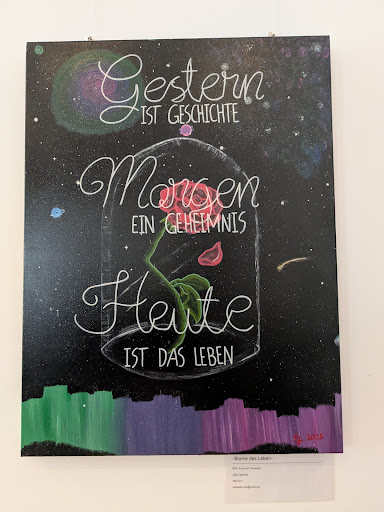 Gestern
IST GESCHICHTE
Morgen
EIN GEHEIMNIS
Heute
IST DAS LEBEN
-Blume des Lebens-